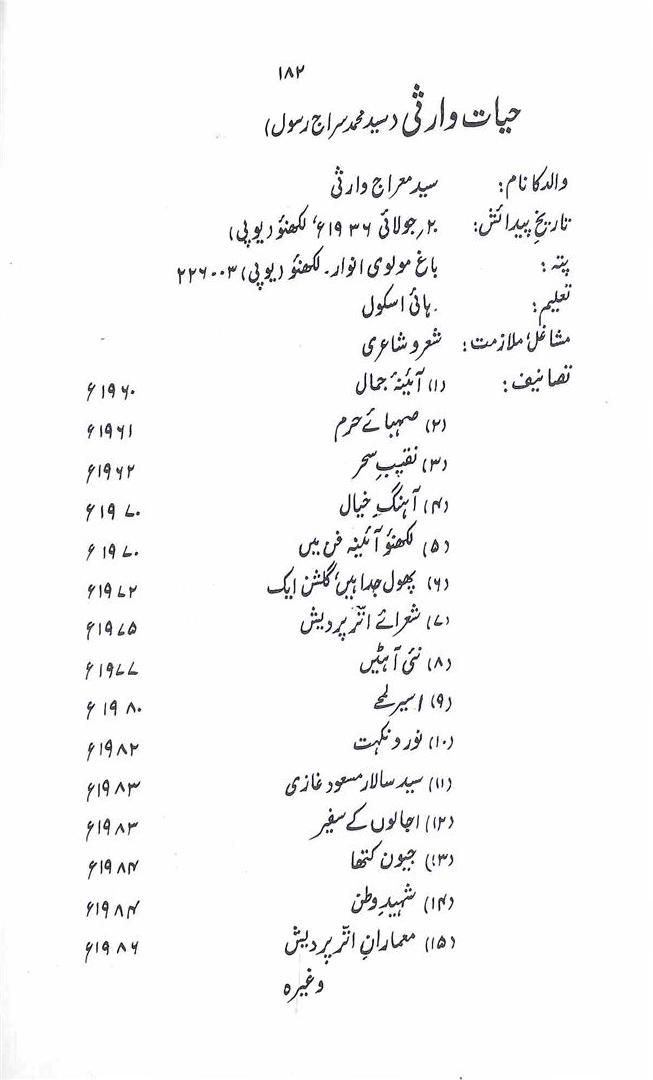 ۱۸۲
حیات وارثی (سید محمد سراج رسول)
والد کا نام: سید معراج وارثی
تاریخِ پیدائش: ۲؍جولائی ۱۹۳۶ء، لکھنؤ (یوپی)
پتہ: باغ مولوی انوار۔ لکھنؤ (یوپی) ۲۲۶۰۰۳
تعلیم: ہائی اسکول
مشاغل؍ملازمت: شعر و شاعری
تصانیف: (۱) آئینۂ جمال ۱۹۶۰ء
(۲) صہبائے حرم ۱۹۶۱ء
(۳) نقیبِ سحر ۱۹۶۲ء
(۴) آہنگِ خیال ۱۹۷۰ء
(۵) لکھنؤ آئینہ فن میں ۱۹۷۰ء
(۶) پھول جدا ہیں، گلشن ایک ۱۹۷۲ء
(۷) شعرائے اتر پردیش ۱۹۷۵ء
(۸) نئی آہٹیں ۱۹۷۷ء
(۹) اسیر لمحے ۱۹۸۰ء
(۱۰) نور و نکہت ۱۹۸۲ء
(۱۱) سید سالار مسعود غازی ۱۹۸۳ء
(۱۲) اجالوں کے سفیر ۱۹۸۳ء
(۱۳) جیون کتھا ۱۹۸۴ء
(۱۴) شہیدِ وطن ۱۹۸۴ء
(۱۵) معمارانِ اتر پردیش ۱۹۸۶ء
وغیرہ